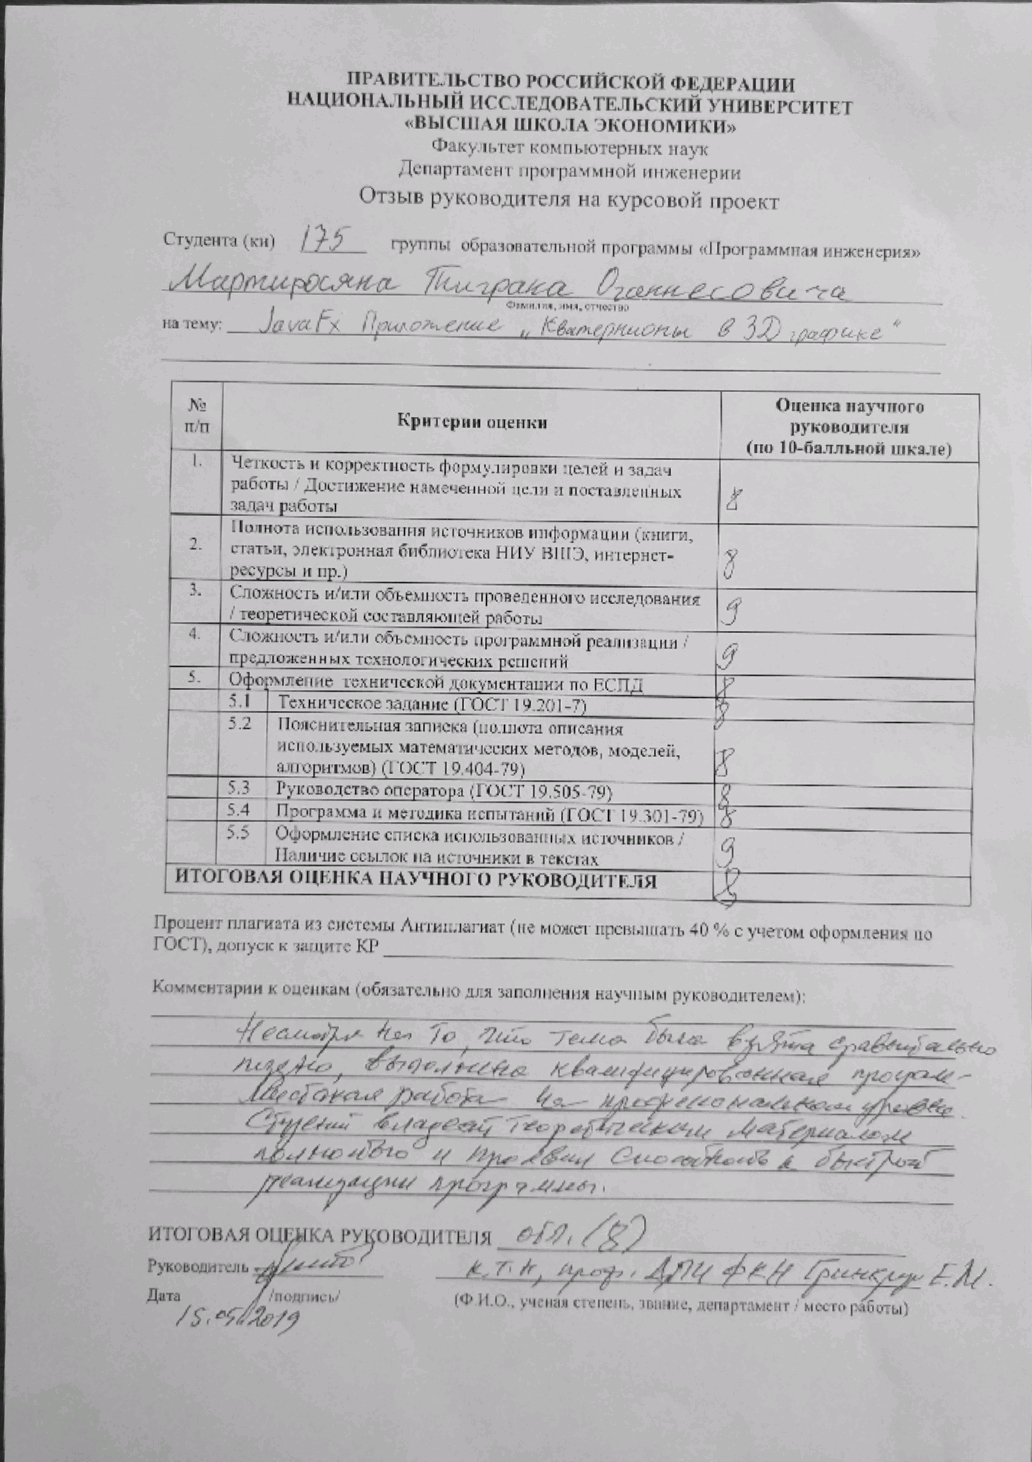 ПРАВИТЕЛЬСТВО РОССИЙСКОЙ ФЕДЕРАЦИИ
НАЦИОНАЛЬНЫЙ ИССЛЕДОВАТЕЛЬСКИЙ УНИВЕРСИТЕТ
«ВЫСШАЯ ШКОЛА ЭКОНОМИКИ»
Факультет компьютерных наук
Департамент программной инженерии
Отзыв руководителя на курсовой проект
Студента (ки) 175 группы образовательной программы «Программная инженерия»
Мартиросяна Тиграна Оганнесовича
Фамилия, имя, отчество
на тему: JavaFx Приложение „Кватернионы в 3D графике"
№ п/п Критерии оценки Оценка научного руководителя (по 10-балльной шкале)
1. Четкость и корректность формулировки целей и задач
работы / Достижение намеченной цели и поставленных
задач работы 8
2. Полнота использования источников информации (книги,
статьи, электронная библиотека НИУ ВШЭ, интернет-
ресурсы и пр.) 8
3. Сложность и/или объемность проведенного исследования
/ теоретической составляющей работы 9
4. Сложность и/или объемность программной реализации /
предложенных технологических решений 9
5. Оформление технической документации по ЕСПД 8
5.1 Техническое задание (ГОСТ 19.201-7) 8
5.2 Пояснительная записка (полнота описания
используемых математических методов, моделей,
алгоритмов) (ГОСТ 19.404-79) 8
5.3 Руководство оператора (ГОСТ 19.505-79) 8
5.4 Программа и методика испытаний (ГОСТ 19.301-79) 8
5.5 Оформление списка использованных источников /
Наличие ссылок на источники в текстах 9
ИТОГОВАЯ ОЦЕНКА НАУЧНОГО РУКОВОДИТЕЛЯ 8
Процент плагиата из системы Антиплагиат (не может превышать 40 % с учетом оформления по
ГОСТ), допуск к защите КР
Комментарии к оценкам (обязательно для заполнения научным руководителем):
Несмотря на то, что тема была взята сравнительно
поздно, выполнена квалифицированная програм-
работа на профессиональном уровне.
Студент владеет теоретическим материалом
полностью и проявил способность к быстрой
реализации программы.
ИТОГОВАЯ ОЦЕНКА РУКОВОДИТЕЛЯ отл. (8)
Руководитель к.т.н, проф. ДПИ ФКН Гринкруг Е.М.
Дата /подпись/ (Ф.И.О., ученая степень, звание, департамент / место работы)
15.05.2019